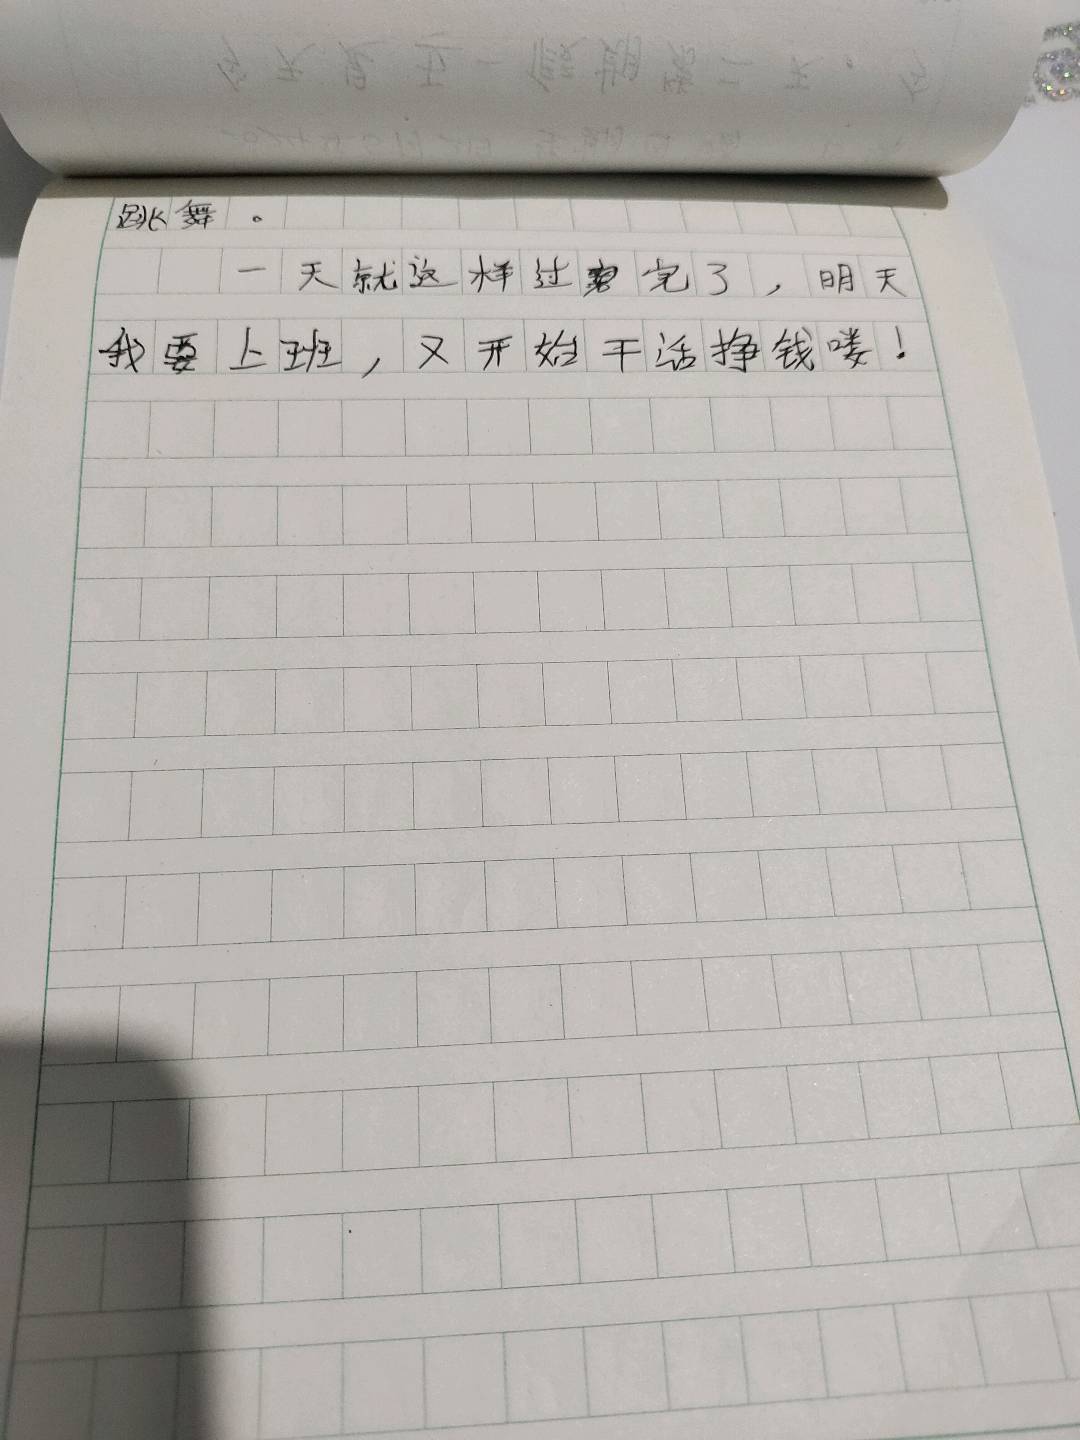 跳舞。
一天就这样过完了，明天
我要上班，又开始干活挣钱喽！